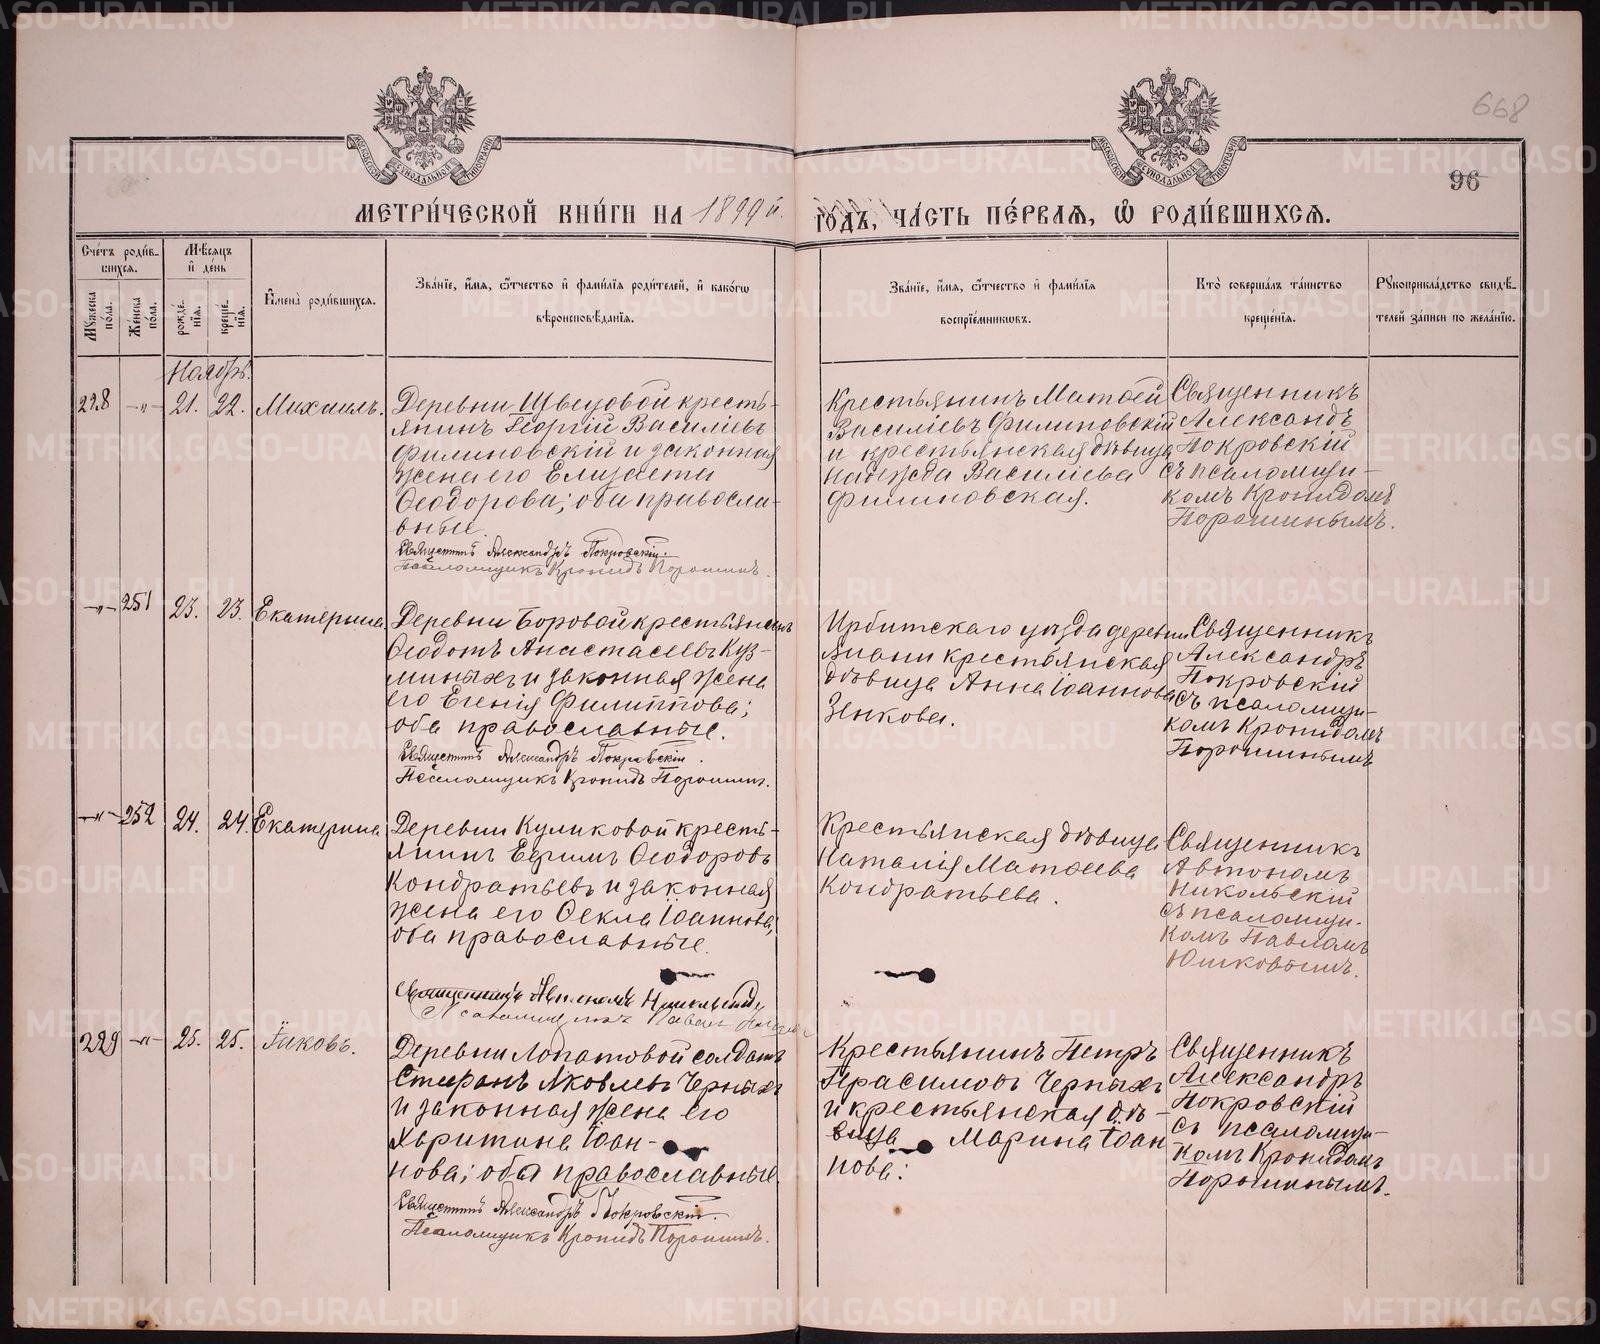 METRIKI.GASO-URAL.RU
668
96
МОСКОВСКОЙ СѴНОДАЛЬНОЙ ТИПОГРАФІИ
МОСКОВСКОЙ СѴНОДАЛЬНОЙ ТИПОГРАФІИ
МЕТРИ́ЧЕСКОЙ КНИ́ГИ НА 1899й. ГО́ДЪ, ЧА́СТЬ ПЕ́РВАЯ, Ѽ РОДИ́ВШИХСЯ.
Сче́тъ роди́в-
шихся.
Мꙋ́жеска по́ла.
Же́нска по́ла.
Мѣ́сяцъ
и҆ де́нь
рожде́-
нія.
креще́-
нія.
И҆мена̀ роди́вшихся.
Зва́ніе, и҆́мя, ѻ҆́тчество и҆ фами́лія роди́телей, и҆ како́гѡ
вѣроисповѣ́данія.
Зва́ніе, и҆́мя, ѻ҆́тчество и҆ фами́лія
воспріе́мникѡвъ.
Кто̀ соверша́лъ та́инство
креще́нія.
Рꙋкоприкла́дство свидѣ́-
телей за́писи по жела́нію.
Ноябрь.
228 -"- 21. 22. Михаилъ.
Деревни Швецовой кресть-
янинъ Георгій Василіевъ
Филиновскій и законная
жена его Елизавета
Ѳеодорова; оба правосла-
вные.
Священникъ Александръ Покровскій.
Псаломщикъ Кронидъ Порошинъ.
Крестьянинъ Матѳей
Василіевъ Филиновскій
и крестьянская дѣвица
Надежда Василіева
Филиновская.
Священникъ
Александръ
Покровскій
съ псаломщи-
комъ Кронидомъ
Порошинымъ.
-"- 251 23. 23. Екатерина.
Деревни Боровой крестьянинъ
Ѳеодотъ Анастасіевъ Куз-
миныхъ и законная жена
его Евгенія Филиппова;
оба православные.
Священникъ Александръ Покровскій.
Псаломщикъ Кронидъ Порошинъ.
Ирбитскаго уѣзда деревни
крестьянская
дѣвица Анна Іоаннова
Зенкова.
Священникъ
Александръ
Покровскій
съ псаломщи-
комъ Кронидомъ
Порошинымъ
-"- 252 24. 24. Екатерина
Деревни Куликовой кресть-
янинъ Ефимъ Ѳеодоровъ
Кондратьевъ и законная
жена его Ѳекла Іоаннова;
оба православные.
Священникъ Автономъ Никольскій
Псаломщикъ Павелъ
Крестьянская дѣвица
Наталія Матѳеева
Кондратьева.
Священникъ
Автономъ
Никольскій
съ псаломщи-
комъ Павломъ
Юшковымъ.
229 -"- 25. 25. Іаковъ.
Деревни Лопатовой солдатъ
Стефанъ Яковлевъ Черныхъ
и законная жена его
Харитина Іоан-
нова; оба православные.
Священникъ Александръ Покровскій.
Псаломщикъ Кронидъ Порошинъ.
Крестьянинъ Петръ
Герасимовъ Черныхъ
и крестьянская дѣ-
вица Марина Іоан-
нова.
Священникъ
Александръ
Покровскій
съ псаломщи-
комъ Кронидомъ
Порошинымъ.